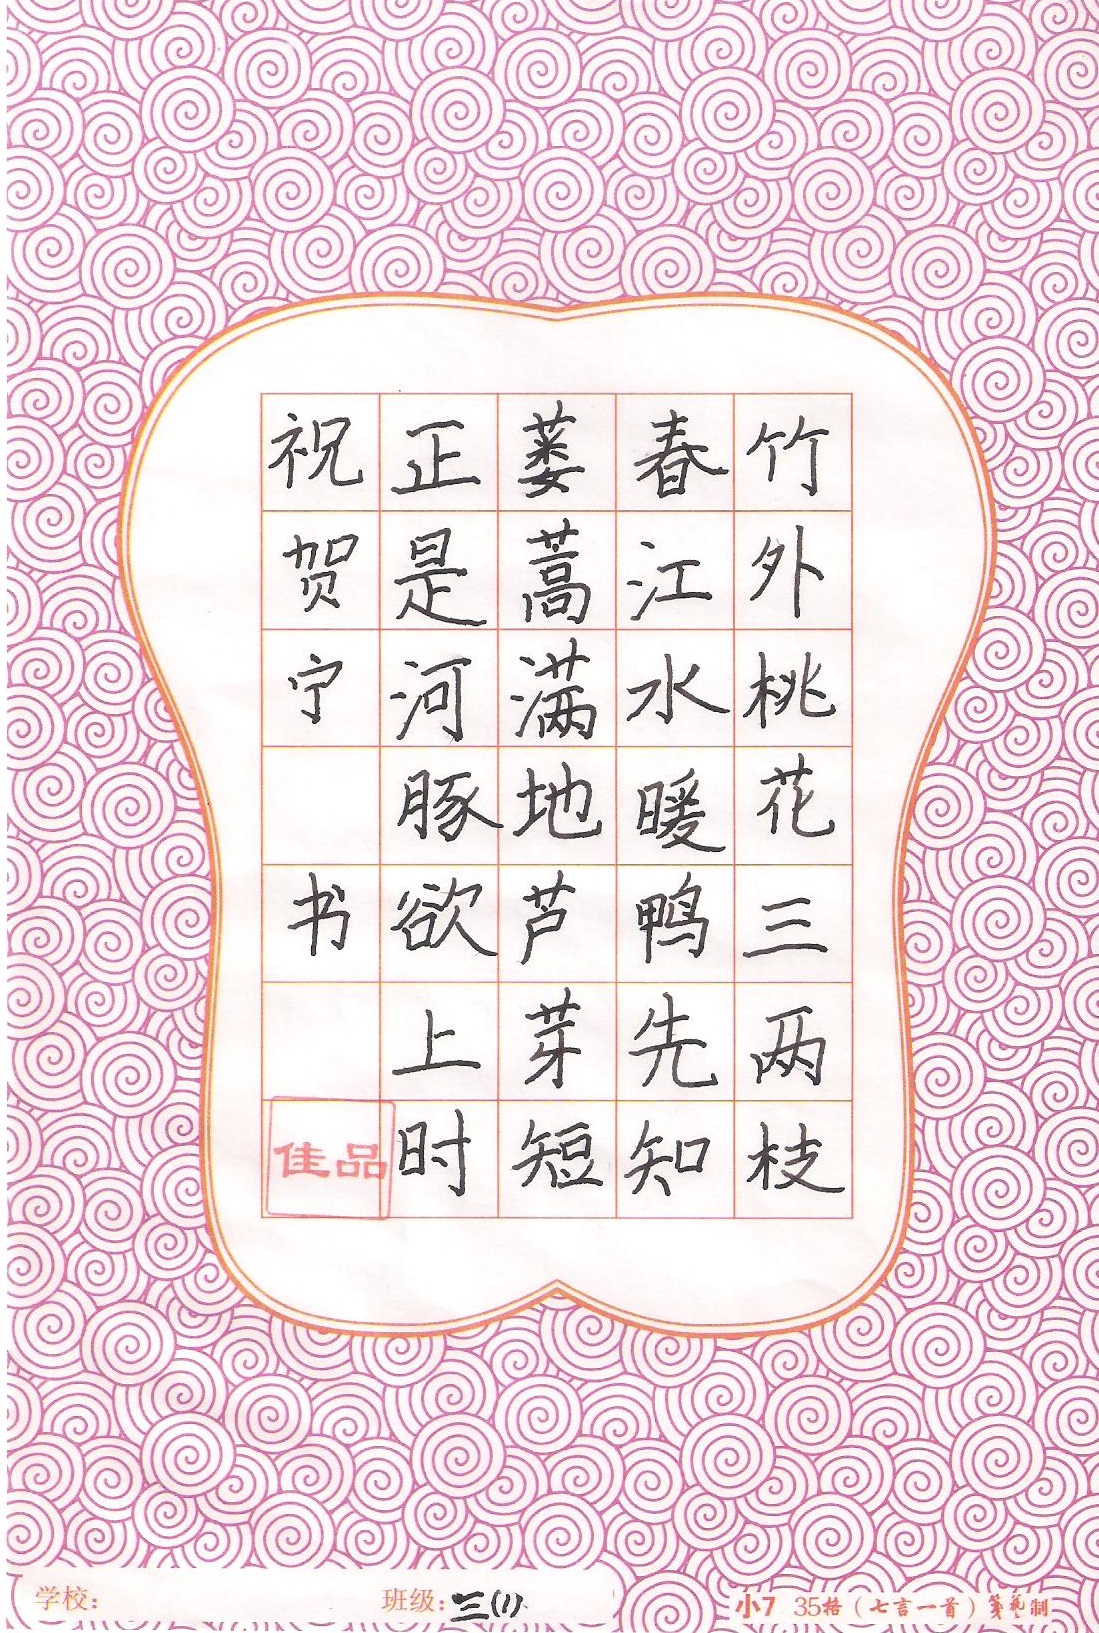 竹外桃花三两枝
春江水暖鸭先知
蒌蒿满地芦芽短
正是河豚欲上时
祝贺宁 书
佳品
学校：
班级：三(1)
小7 35格（七言一首）笺艺制